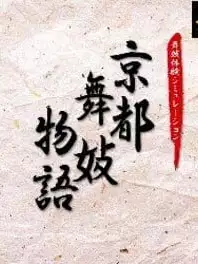 舞妓体験シミュレーション
京都
舞妓
物語